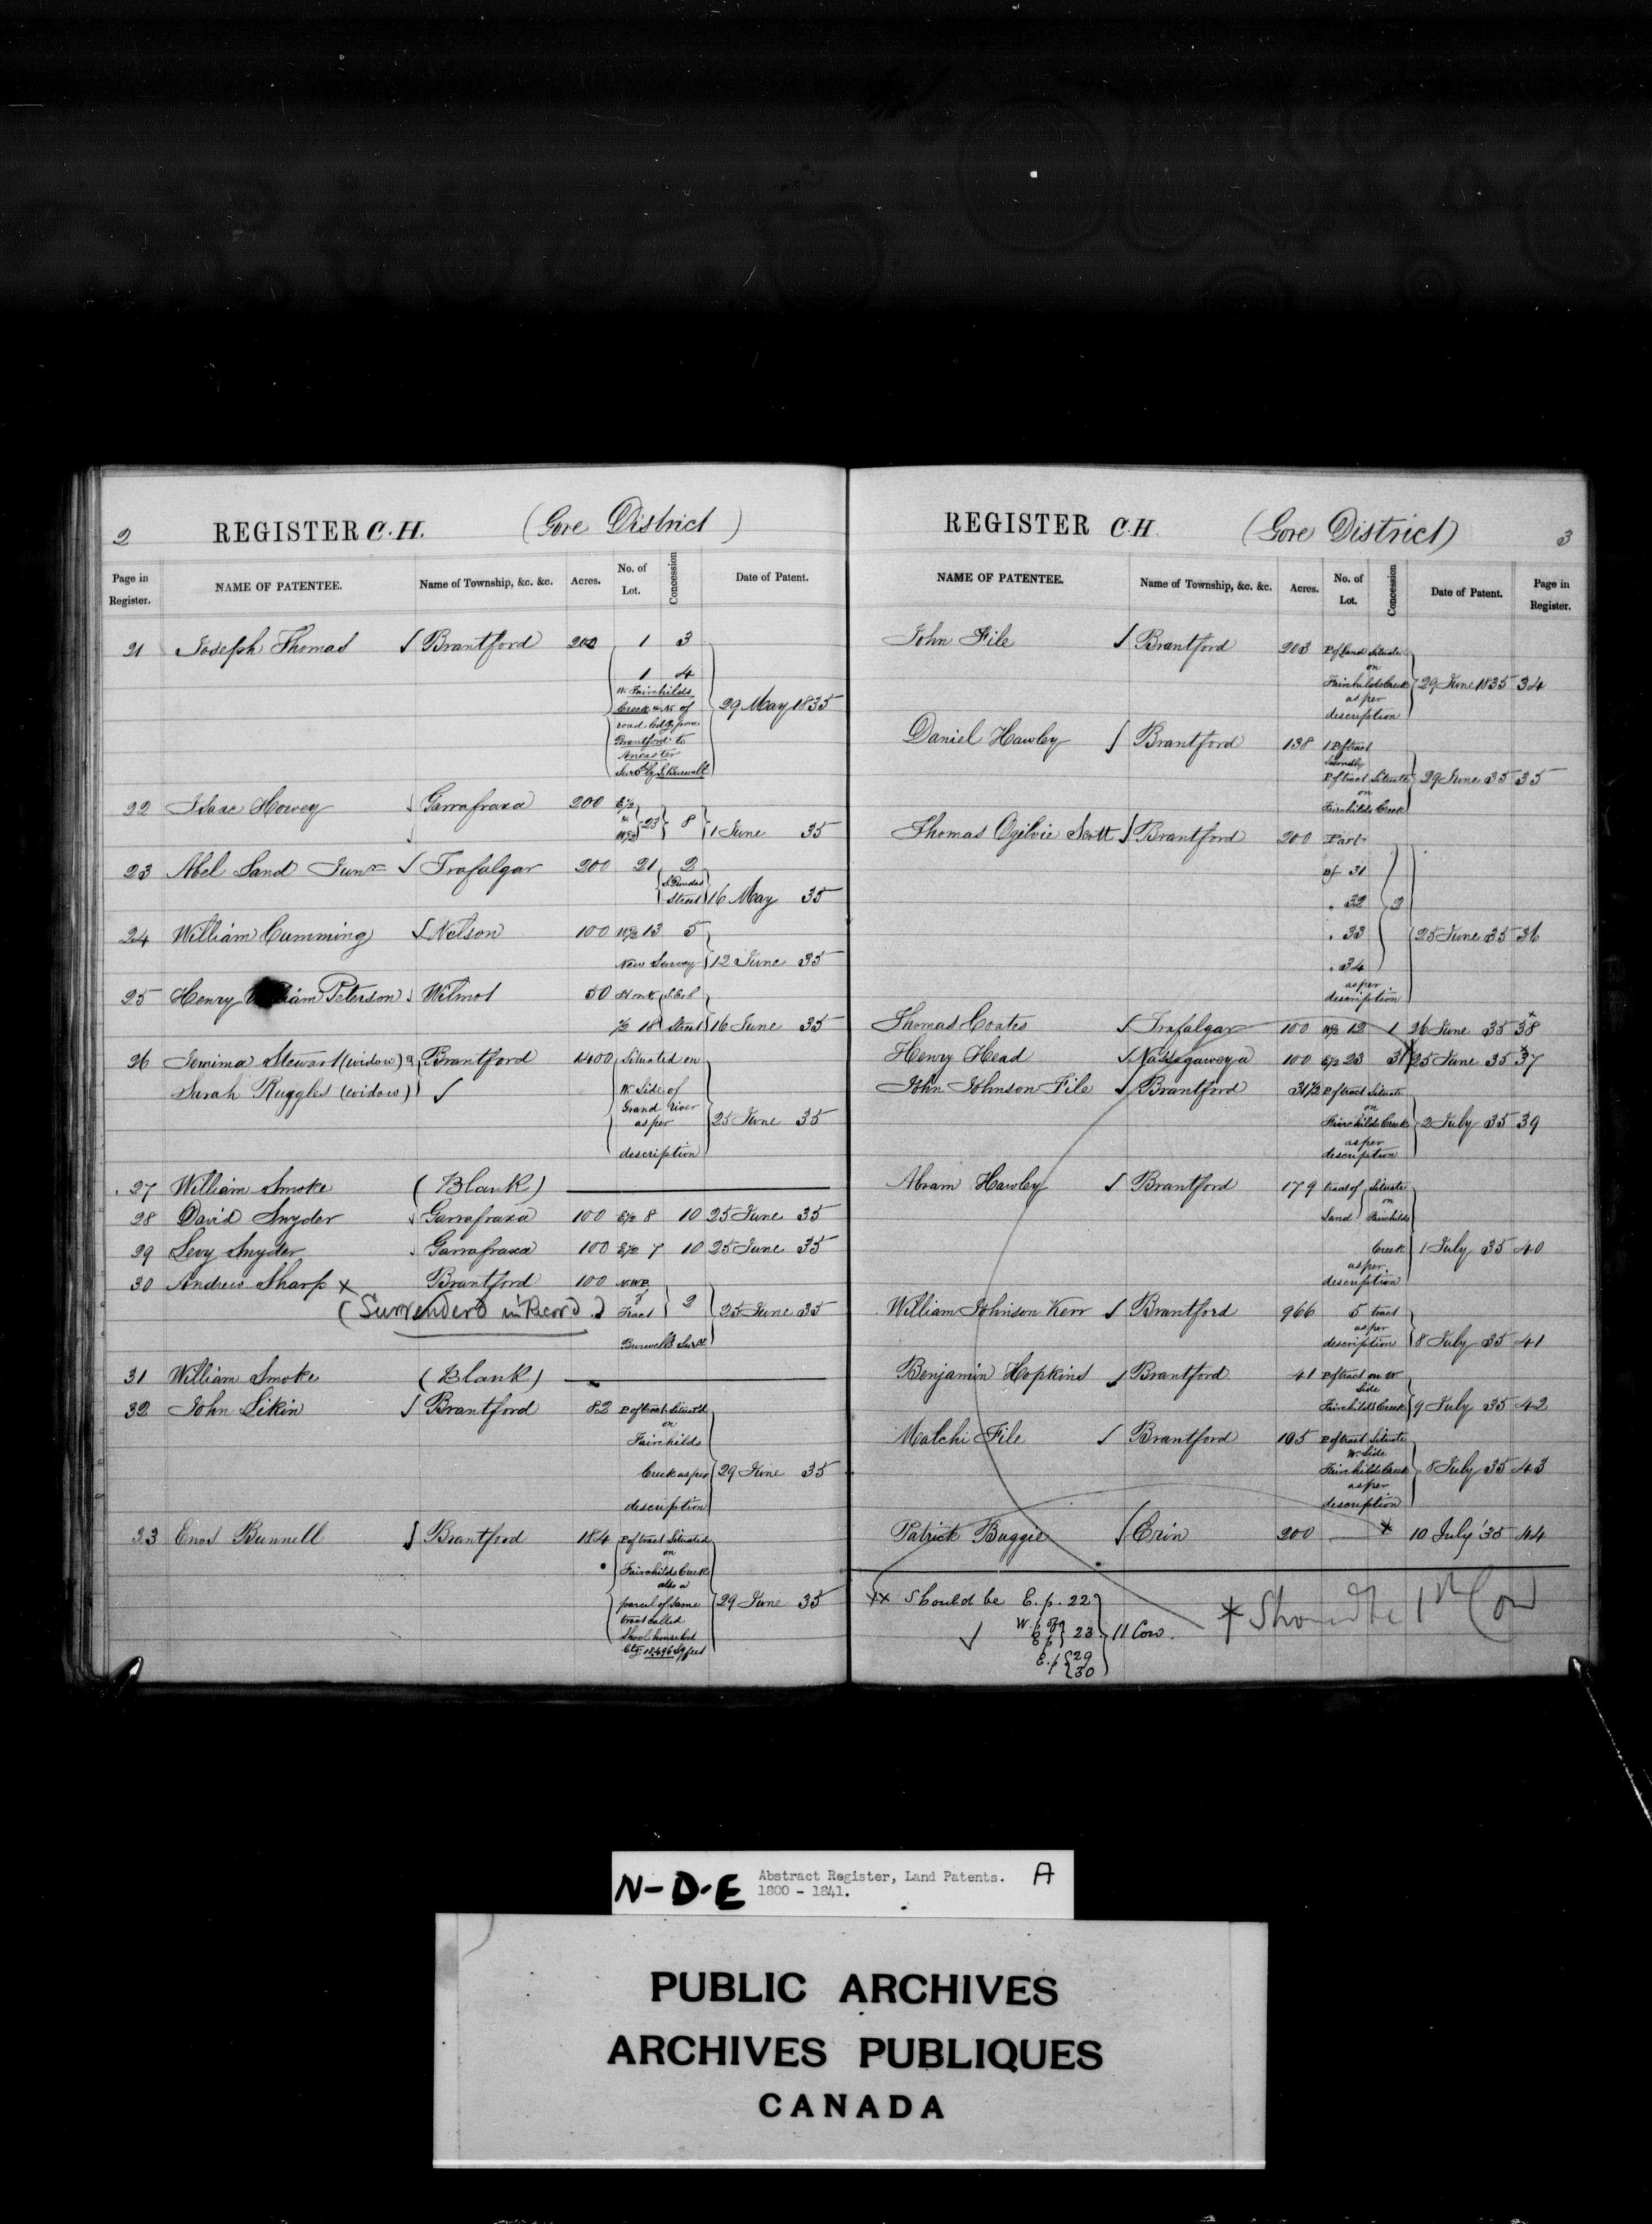 2 REGISTER C.H. (Gore District)
Page in Register. NAME OF PATENTEE. Name of Township, &c. &c. Acres. No. of Lot. Concession Date of Patent.
21 Joseph Thomas Brantford 200 1 3
1 4
W. Fairchilds
Creek & N. of
road ldg from
Brantford to
Ancaster
Surv'd by L. Burwell
29 May 1835
22 Isaac Howey Garrafraxa 200 E½ & W½ 23 8 1 June 35
23 Abel Land Junr Trafalgar 200 21 2
S. Dundas
Street 16 May 35
24 William Cumming Nelson 100 W½ 13 5
New Survey 12 June 35
25 Henry William Peterson Wilmot 50
½ 18 Street 16 June 35
26 Jemima Stewart (widow) & Brantford 1400 Situated on
Sarah Ruggles (widow)
W. Side of
Grand River
as per
description
25 June 35
27 William Smoke (Blank)
28 David Snyder Garrafraxa 100 E½ 8 10 25 June 35
29 Levy Snyder Garrafraxa 100 E½ 7 10 25 June 35
30 Andrew Sharp x Brantford 100 N.W.P.
(Surrender'd in Record.) of
Tract 2 25 June 35
Burwell's Surv
31 William Smoke (Blank)
32 John Likin Brantford 82 P of tract Situated
on
Fairchilds
Creek as per
description
29 June 35
33 Enos Bunnell Brantford 184 P of tract Situated
on
Fairchilds Creek
also a
parcel of same
tract called
School house lot
Ctg. 18,496 Sq feet
29 June 35
REGISTER C.H. (Gore District) 3
NAME OF PATENTEE. Name of Township, &c. &c. Acres. No. of Lot. Concession Date of Patent. Page in Register.
John File Brantford 203 P of Land Situate
on
Fairchilds Creek
as per
description
29 June 1835 34
Daniel Hawley Brantford 138 1 P of tract
Secondly
P of tract Situate
on
Fairchilds Creek
29 June 35 35
Thomas Ogilvie Scott Brantford 200 Part
of 31
" 32 2
" 33
" 34
as per
description
25 June 35 36
Thomas Coates Trafalgar 100 W½ 12 1 26 June 35 38 x
Henry Head Nassagaweya 100 E½ 23 3 25 June 35 37 x
John Johnson File Brantford 31½ P of tract Situate
on
Fairchilds Creek
as per
description
2 July 35 39
Abram Hawley Brantford 179 tract of Situate
on
Land Fairchilds
Creek
as per
description
1 July 35 40
William Johnson Kerr Brantford 966 5 tract
as per
description 8 July 35 41
Benjamin Hopkins Brantford 41 P of tract on W
Side
Fairchilds Creek 9 July 35 42
Malchi File Brantford 105 P of tract Situate
W Side
Fairchilds Creek
as per
description
8 July 35 43
Patrick Baggie Erin 200 — * 10 July '35 44
xx Should be E.p. 22
W.p. of
E p 23 11 Con.
E.p 29
30
* Should be 1st Con
N-D-E Abstract Register, Land Patents. A
1800 - 1841.
PUBLIC ARCHIVES
ARCHIVES PUBLIQUES
CANADA